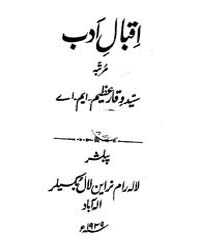 اقبالِ ادب
مرتبہ
سیّد وقار عظیم۔ ایم۔ اے
پبلشر
لالہ رام نراین لال بکسیلر
الہ آباد
۱۹۳۹ء